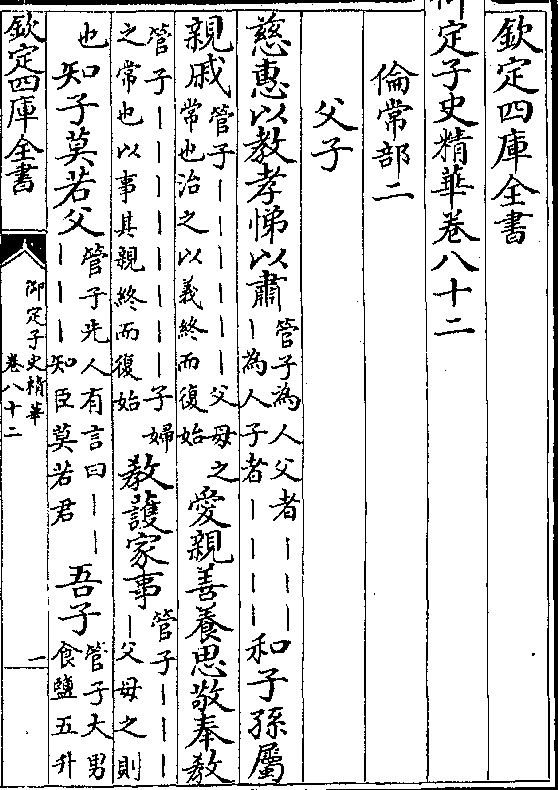 欽定四庫全書
御定子史精華卷八十二
倫常部二
父子
慈惠以教孝悌以肅管子為人父者丨丨丨丨為人子者丨丨丨丨和子孫屬
親戚管子丨丨丨丨丨丨父母之常也治之以義終而復始愛親善養思敬奉教
管子丨丨丨丨丨丨丨丨子婦之常也以事其親終而復始教護家事管子丨丨丨丨父母之則
也知子莫若父管子先人有言曰丨丨丨丨丨知臣莫若君吾子管子大男食鹽五升
欽定四庫全書
御定子史精華
卷八十二
一